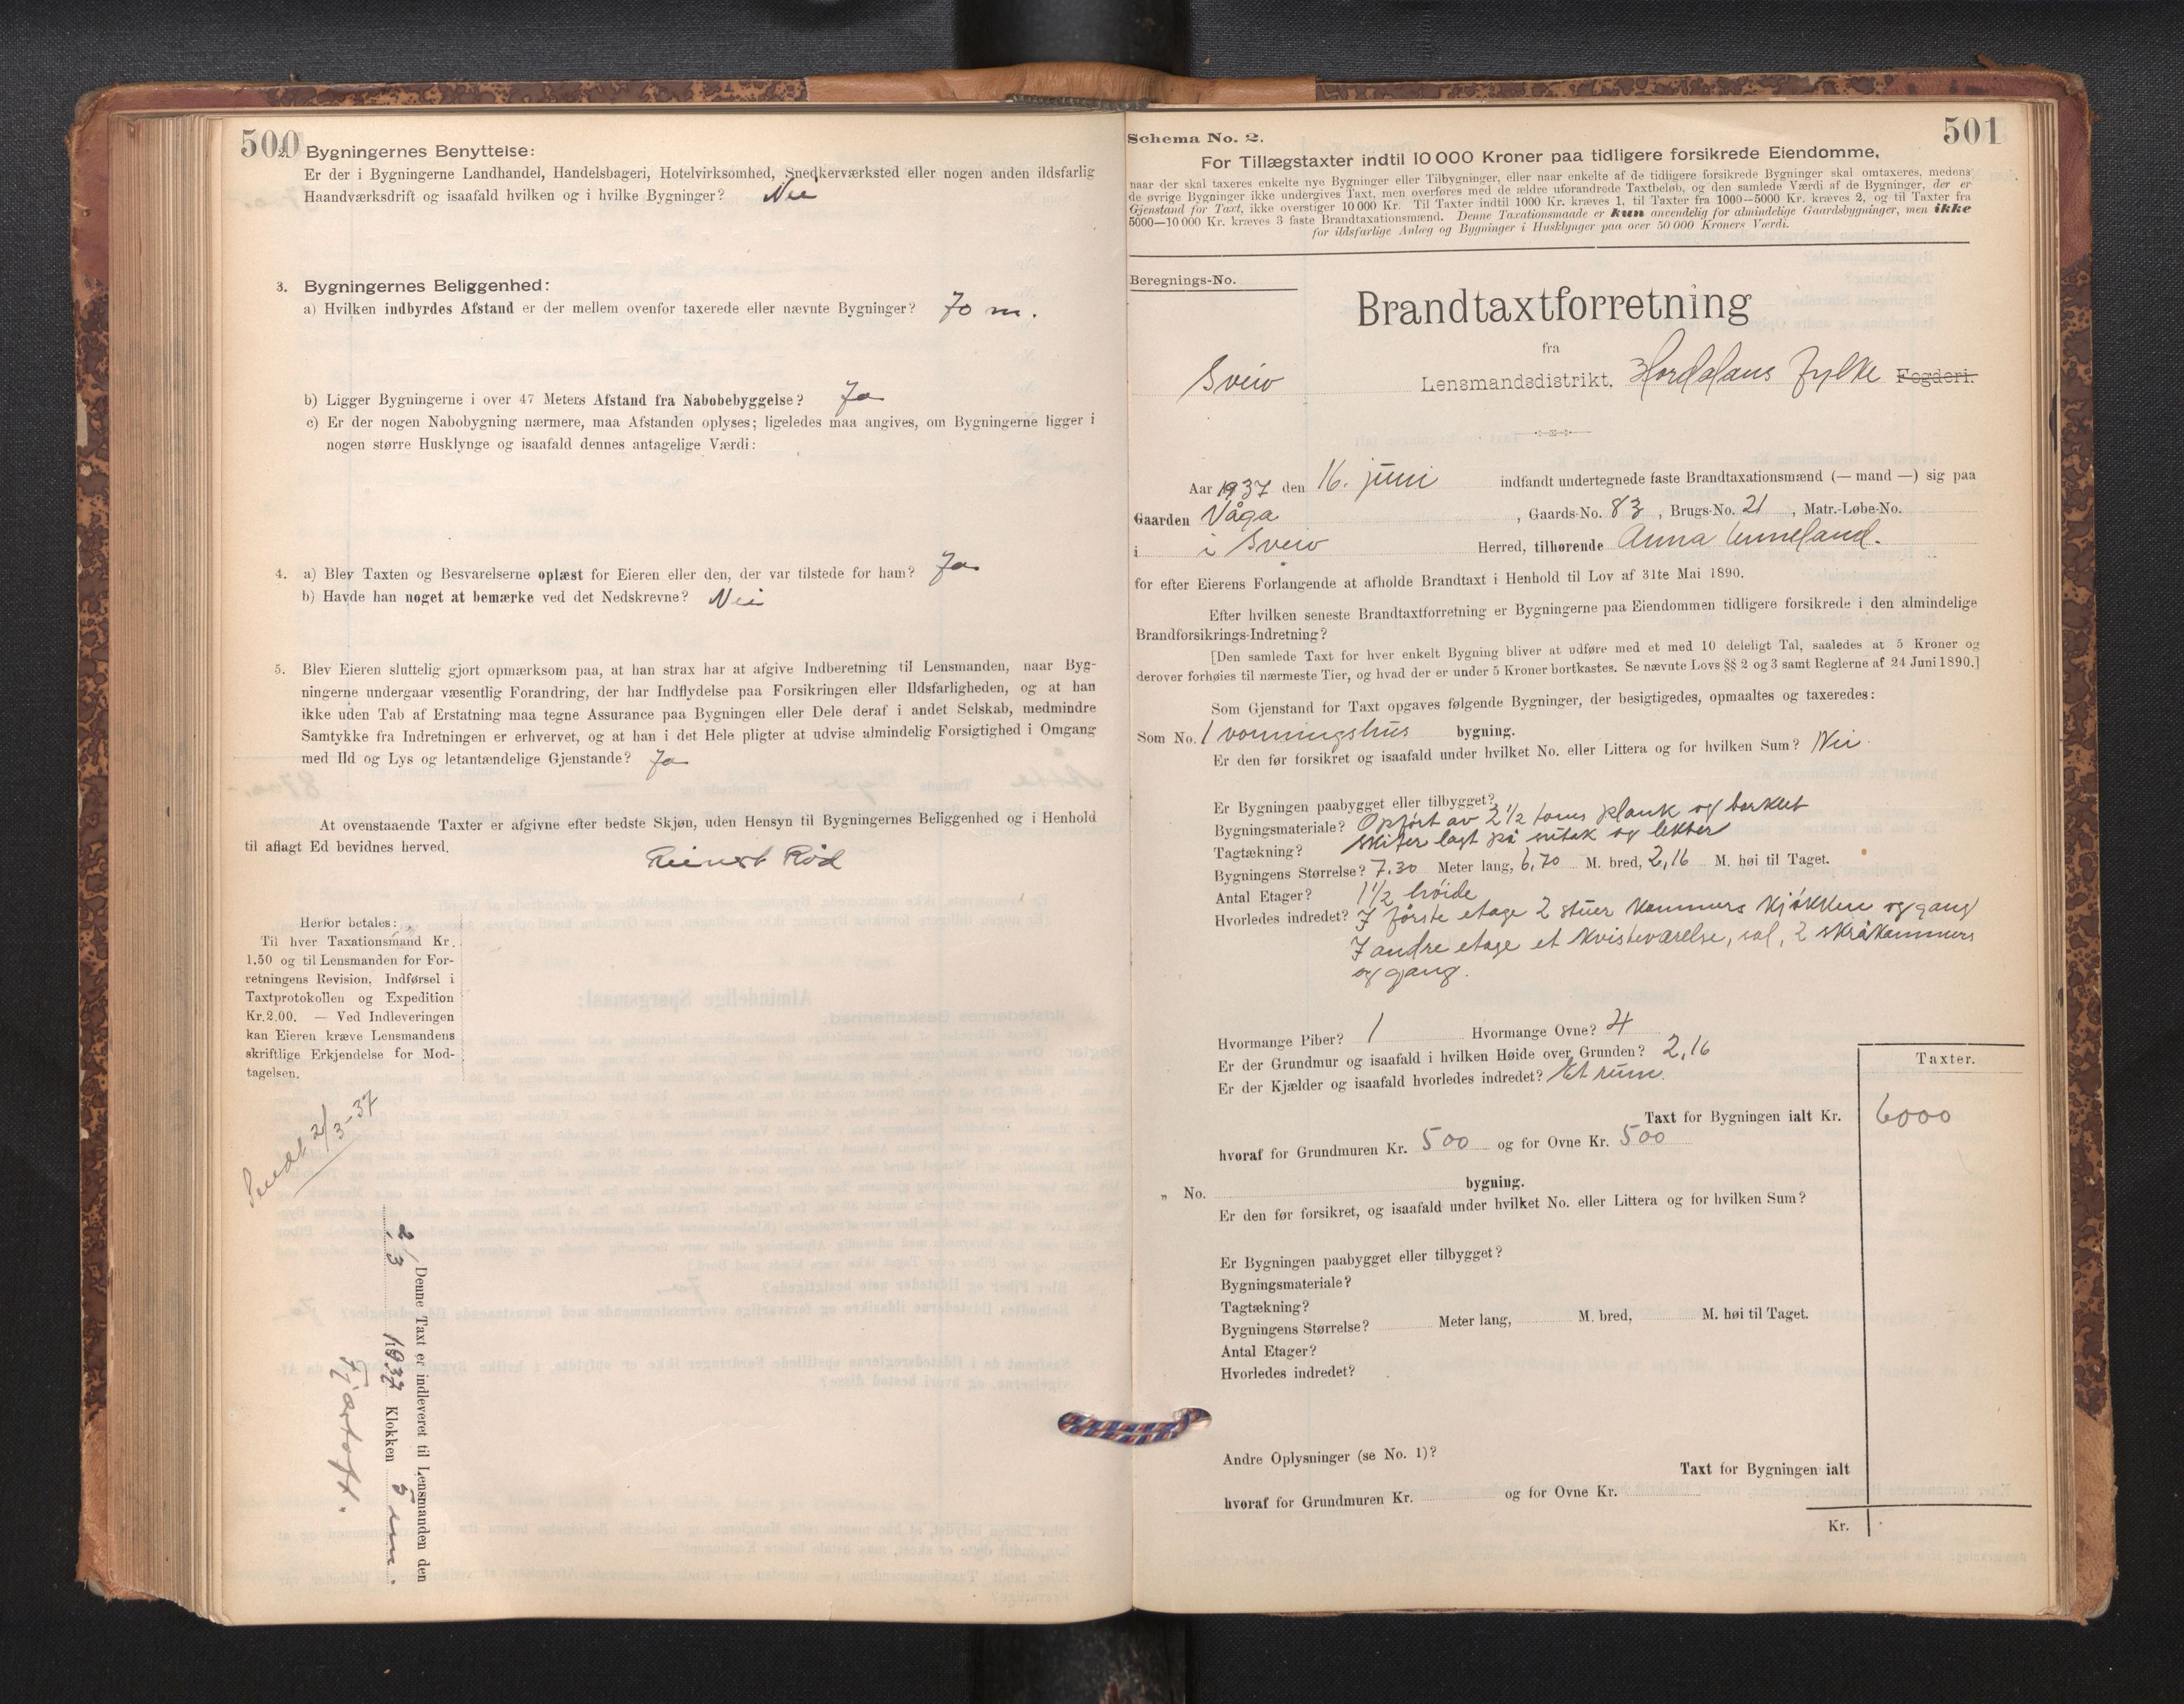 500
2. Bygningernes Benyttelse:
Er der i Bygningerne Landhandel, Handelsbageri, Hotelvirksomhed, Snedkerværksted eller nogen anden ildsfarlig
Haandværksdrift og isaafald hvilken og i hvilke Bygninger? Nei
3. Bygningernes Beliggenhed:
a) Hvilken indbyrdes Afstand er der mellem ovenfor taxerede eller nævnte Bygninger? 70 m.
b) Ligger Bygningerne i over 47 Meters Afstand fra Nabobebyggelse? Ja
c) Er der nogen Nabobygning nærmere, maa Afstanden oplyses; ligeledes maa angives, om Bygningerne ligger i
nogen større Husklynge og isaafald dennes antagelige Værdi:
4. a) Blev Taxten og Besvarelserne oplæst for Eieren eller den, der var tilstede for ham? Ja
b) Havde han noget at bemærke ved det Nedskrevne? Nei
5. Blev Eieren sluttelig gjort opmærksom paa, at han strax har at afgive Indberetning til Lensmanden, naar Byg-
ningerne undergaar væsentlig Forandring, der har Indflydelse paa Forsikringen eller Ildsfarligheden, og at han
ikke uden Tab af Erstatning maa tegne Assurance paa Bygningen eller Dele deraf i andet Selskab, medmindre
Samtykke fra Indretningen er erhvervet, og at han i det Hele pligter at udvise almindelig Forsigtighed i Omgang
med Ild og Lys og letantændelige Gjenstande? Ja
At ovenstaaende Taxter er afgivne efter bedste Skjøn, uden Hensyn til Bygningernes Beliggenhed og i Henhold
til aflagt Ed bevidnes herved.
Reinert Rød
Herfor betales:
Til hver Taxationsmand Kr.
1.50 og til Lensmanden for For-
retningens Revision, Indførsel i
Taxtprotokollen og Expedition
Kr. 2.00. — Ved Indleveringen
kan Eieren kræve Lensmandens
skriftlige Erkjendelse for Mod-
tagelsen.
Sendt 2/3-37
Denne Taxt er indleveret til Lensmanden den
2/3 1937 Klokken 5 em.
501
Schema No. 2.
For Tillægstaxter indtil 10 000 Kroner paa tidligere forsikrede Eiendomme,
naar der skal taxeres enkelte nye Bygninger eller Tilbygninger, eller naar enkelte af de tidligere forsikrede Bygninger skal omtaxeres, medens
de øvrige Bygninger ikke undergives Taxt, men overføres med de ældre uforandrede Taxtbeløb, og den samlede Værdi af de Bygninger, der er
Gjenstand for Taxt, ikke overstiger 10 000 Kr. Til Taxter indtil 1000 Kr. kræves 1, til Taxter fra 1000—5000 Kr. kræves 2, og til Taxter fra
5000—10 000 Kr. kræves 3 faste Brandtaxationsmænd. Denne Taxationsmaade er kun anvendelig for almindelige Gaardsbygninger, men ikke
for ildsfarlige Anlæg og Bygninger i Husklynger paa over 50 000 Kroners Værdi.
Beregnings-No.
Brandtaxtforretning
fra
Sveio Lensmandsdistrikt, Hordalans fylke Fogderi.
Aar 1937 den 16. juni indfandt undertegnede faste Brandtaxationsmænd (— mand —) sig paa
Gaarden Våga , Gaards-No. 83 , Brugs-No. 21 , Matr.-Løbe-No.
i i Sveio Herred, tilhørende Anna Unneland.
for efter Eierens Forlangende at afholde Brandtaxt i Henhold til Lov af 31te Mai 1890.
Efter hvilken seneste Brandtaxtforretning er Bygningerne paa Eiendommen tidligere forsikrede i den almindelige
Brandforsikrings-Indretning?
[Den samlede Taxt for hver enkelt Bygning bliver at udføre med et med 10 deleligt Tal, saaledes at 5 Kroner og
derover forhøies til nærmeste Tier, og hvad der er under 5 Kroner bortkastes. Se nævnte Lovs §§ 2 og 3 samt Reglerne af 24 Juni 1890.]
Som Gjenstand for Taxt opgaves følgende Bygninger, der besigtigedes, opmaaltes og taxeredes:
Som No. 1 vonningshus bygning.
Er den før forsikret og isaafald under hvilket No. eller Littera og for hvilken Sum? Nei
Er Bygningen paabygget eller tilbygget?
Bygningsmateriale? Opført av 2 1/2 toms plank og borkledt
Tagtækning? skifer lagt på sutak og lekter
Bygningens Størrelse? 7.30 Meter lang, 6,70 M. bred, 2,16 M. høi til Taget.
Antal Etager? 1 1/2 høide
Hvorledes indredet? I første etage 2 stuer kammers kjøkken og gang
I andre etage et kvistværelse, sal, 2 skråkammers
og gang.
Hvormange Piber? 1 Hvormange Ovne? 4
Er der Grundmur og isaafald i hvilken Høide over Grunden? 2,16
Er der Kjælder og isaafald hvorledes indredet? Et rum.
Taxter.
Taxt for Bygningen ialt Kr. 6000
hvoraf for Grundmuren Kr. 500 og for Ovne Kr. 500
„ No. bygning.
Er den før forsikret, og isaafald under hvilket No. eller Littera og for hvilken Sum?
Er Bygningen paabygget eller tilbygget?
Bygningsmateriale?
Tagtækning?
Bygningens Størrelse? Meter lang, M. bred, M. høi til Taget.
Antal Etager?
Hvorledes indredet?
Andre Oplysninger (se No. 1)?
Taxt for Bygningen ialt
hvoraf for Grundmuren Kr. og for Ovne Kr.
Kr.